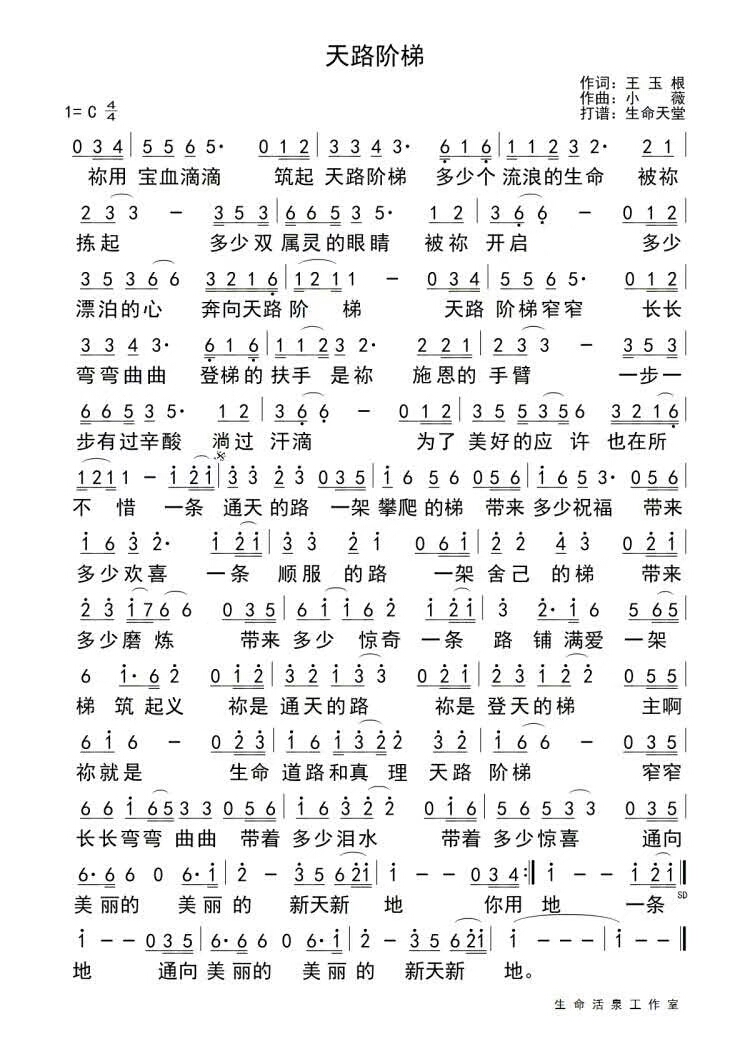 天路阶梯
作词：王玉根
作曲：小薇
打谱：生命天堂
1= C 4/4
0 3 4 | 5 5 6 5· 0 1 2 | 3 3 4 3· 6 1 6 | 1 1 2 3 2· 2 1 |
祢用 宝血滴滴 筑起 天路阶梯 多少个 流浪的生命 被祢
2 3 3 － 3 5 3 | 6 6 5 3 5· 1 2 | 3 6 6 － 0 1 2 |
拣起 多少双 属灵的眼睛 被祢 开启 多少
3 5 3 6 6 3 2 1 6 | 1 2 1 1 － 0 3 4 | 5 5 6 5· 0 1 2 |
漂泊的心 奔向天路 阶 梯 天路 阶梯窄窄 长长
3 3 4 3· 6 1 6 | 1 1 2 3 2· 2 2 1 | 2 3 3 － 3 5 3 |
弯弯曲曲 登梯的 扶手 是祢 施恩的 手臂 一步一
6 6 5 3 5· 1 2 | 3 6 6 － 0 1 2 | 3 5 5 3 5 6 3 2 1 6 |
步有过辛酸 淌过 汗滴 为了 美好的应 许 也在所
1 2 1 1 － 1 2 1 | 3 3 2 3 0 3 5 | 1 6 5 6 0 5 6 | 1 6 5 3· 0 5 6 |
不 惜 一条 通天 的路 一架 攀爬 的梯 带来 多少祝福 带来
1 6 3 2· 1 2 1 | 3 3 2 1 0 6 1 | 2 2 4 3 0 2 1 |
多少欢喜 一条 顺服 的路 一架 舍己 的梯 带来
2 3 1 7 6 6 0 3 5 | 6 1 1 6 2 1 2 1 | 3 3 2· 1 6 5 6 5 |
多少磨炼 带来 多少 惊奇 一条 路 铺 满爱 一架
6 1· 6 2 0 1 2 | 3 3 2 1 2 0 2 1 | 2 3 1 2 1 0 5 5 |
梯 筑 起义 祢是 通天的路 祢是 登天的梯 主啊
6 1 6 － 0 2 3 | 1 6 1 3 2 2 3 2 | 1 6 6 － 0 3 5 |
祢就是 生命 道路和真 理 天路 阶梯 窄窄
6 6 1 6 5 3 3 0 5 6 | 1 6 3 2 2 0 5 6 | 5 6 5 3 3 0 3 5 |
长长弯弯 曲曲 带着 多少泪水 带着 多少惊喜 通向
6· 6 6 0 6· 1 | 2 － 3 5 6 2 1 | 1 － 0 3 4 :‖ 1 － 1 2 1 ‖
美丽的 美丽的 新天新 地 你用 地 一条
SD
1 － 0 3 5 | 6· 6 6 0 6· 1 | 3 － 2 3 5 6 2 1 | 1 － 1 － ‖
地 通向 美丽的 美丽的 新天新 地。
生命活泉工作室